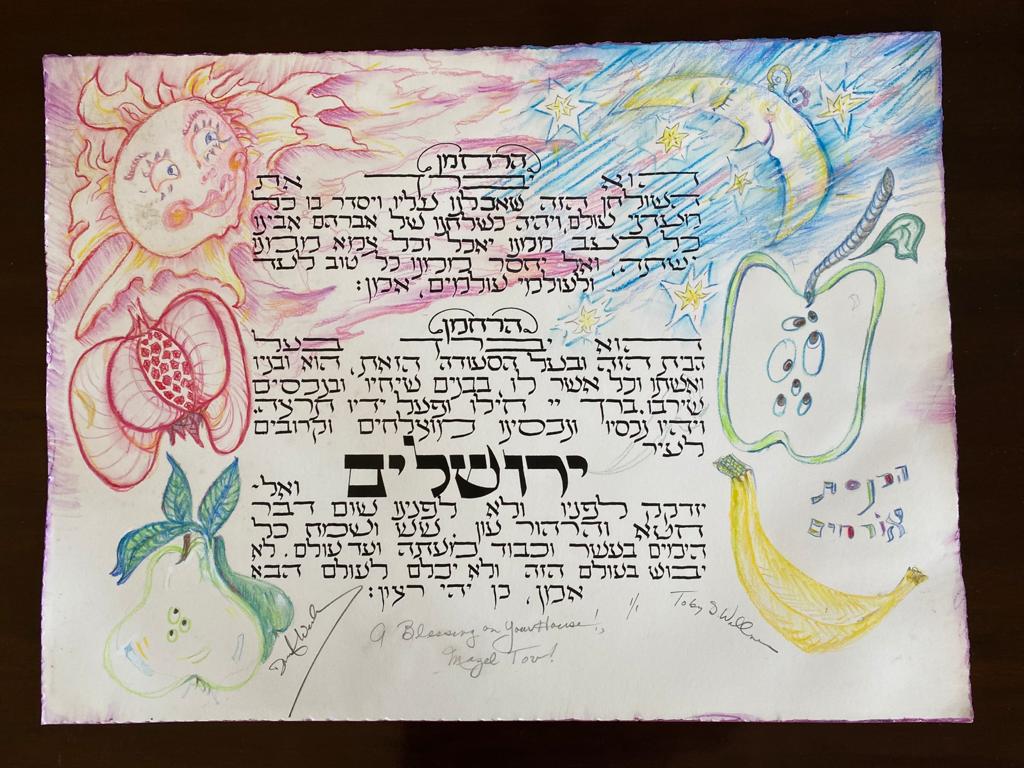 הרחמן
הוא יברך את
השולחן הזה שאכלנו עליו ויסדר בו כל
מעדני עולם, ויהיה כשלחנו של אברהם אבינו
כל רעב ממנו יאכל וכל צמא ממנו
ישתה, ואל יחסר ממנו כל טוב לעד
ולעולמי עולמים, אמן:
הרחמן
הוא יברך בעל
הבית הזה ובעל הסעודה הזאת, הוא ובניו
ואשתו וכל אשר לו, בבנים שיחיו ובנכסים
שירבו. ברך יי חילו ופעל ידיו תרצה.
ויהיו נכסיו ונכסינו מוצלחים וקרובים
לעיר
ירושלים
ואל
יזדקק לפניו ולא לפנינו שום דבר
חטא והרהור עון. שש ושמח כל
הימים בעשר וכבוד מעתה ועד עולם. לא
יבוש בעולם הזה ולא יכלם לעולם הבא
אמן, כן יהי רצון:
הכנסת
אורחים
A Blessing on Your House!,
Mazel Tov!
1/1
Toby S